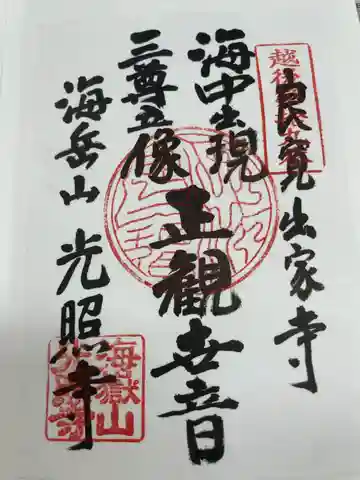 良寛出家寺
海中出現
三尊五像
正観世音
海岳山 光照寺
海嶽山
光照寺